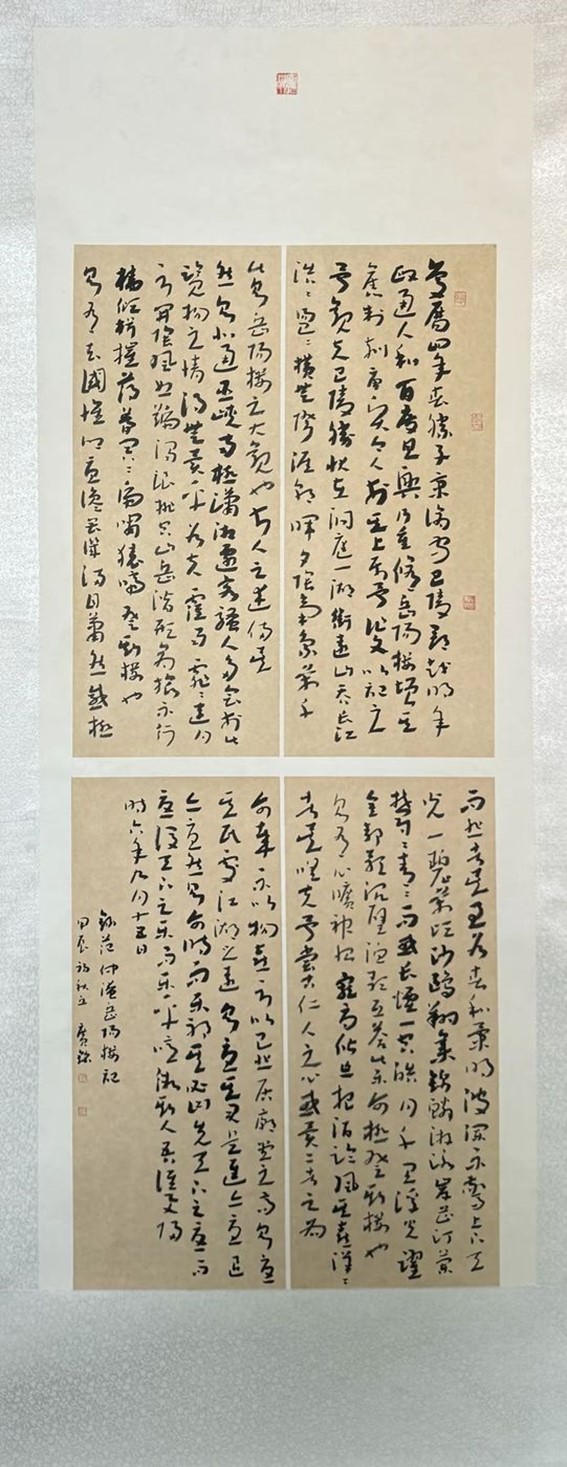 慶曆四年春滕子京謫守巴陵郡越明年
政通人和百廢具興乃重修岳陽樓增其
舊制刻唐賢今人於其上屬予作文以記之
予觀夫巴陵勝狀在洞庭一湖銜遠山吞長江
浩浩湯湯橫無際涯朝暉夕陰氣象萬千
此則岳陽樓之大觀也前人之述備矣
然則北通巫峽南極瀟湘遷客騷人多會於此
覽物之情得無異乎若夫霪雨霏霏連月
不開陰風怒號濁浪排空山岳潛形商旅不行
檣傾楫摧薄暮冥冥虎嘯猿啼登斯樓也
則有去國懷鄉憂讒畏譏滿目蕭然感極
而悲者矣至若春和景明波瀾不驚上下天
光一碧萬頃沙鷗翔集錦鱗游泳岸芷汀蘭
郁郁青青而或長煙一空皓月千里浮光躍
金靜影沉璧漁歌互答此樂何極登斯樓也
則有心曠神怡寵辱偕忘把酒臨風其喜洋洋
者矣嗟夫予嘗求古仁人之心或異二者之為
何哉不以物喜不以己悲居廟堂之高則憂
其民處江湖之遠則憂其君是進亦憂退
亦憂然則何時而樂耶其必曰先天下之憂而
憂後天下之樂而樂乎噫微斯人吾誰與歸
時六年九月十五日
錄范仲淹岳陽樓記
甲辰初秋